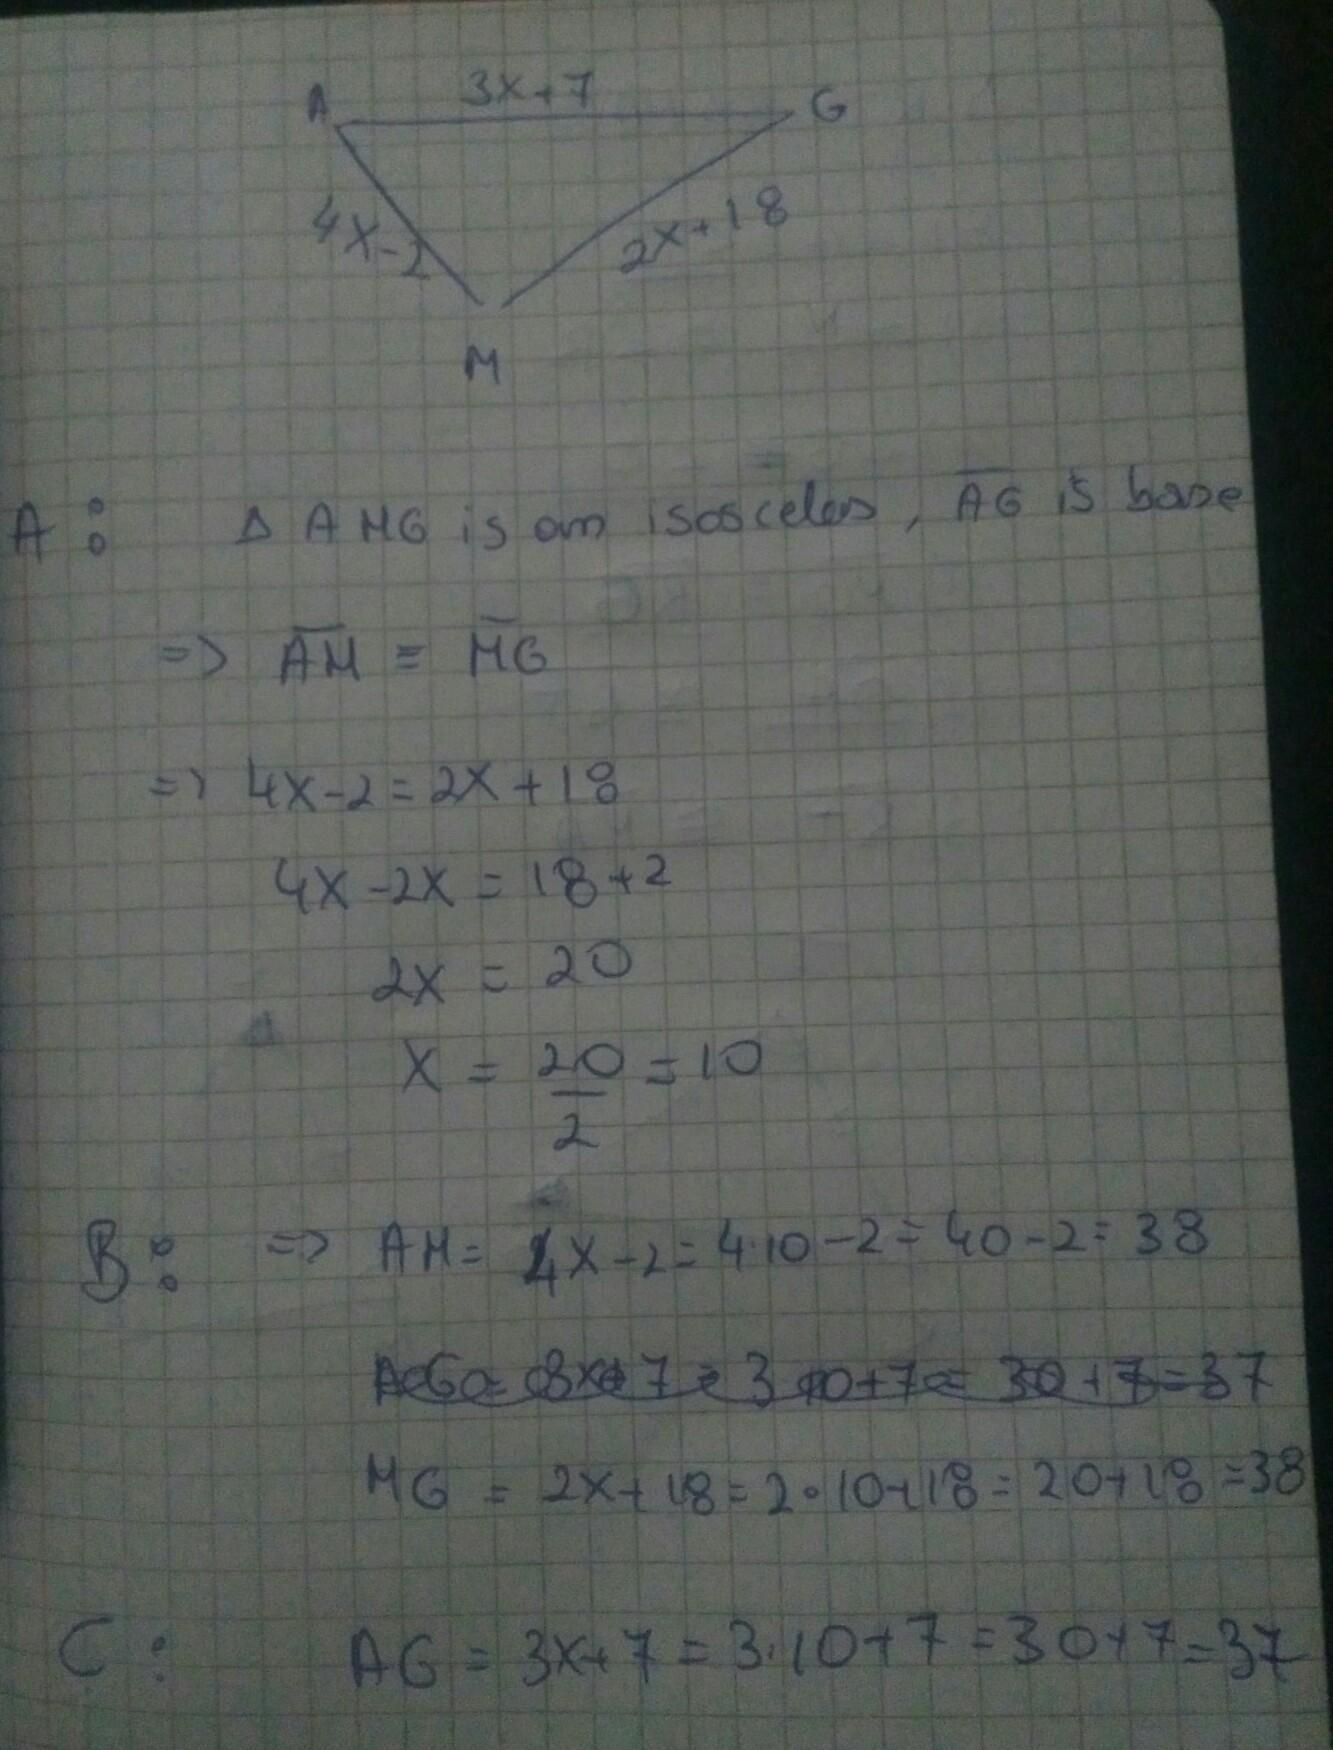 3x+7
A G
4x-2 2x+18
M
A: Δ AMG is an isosceles, AG is base
=> AM ≡ MG
=> 4x-2=2x+18
4x-2x=18+2
2x=20
x=20/2=10
B: => AM=4x-2=4·10-2=40-2=38
AG=3x+7=3·10+7=30+7=37
MG=2x+18=2·10+18=20+18=38
C: AG=3x+7=3·10+7=30+7=37